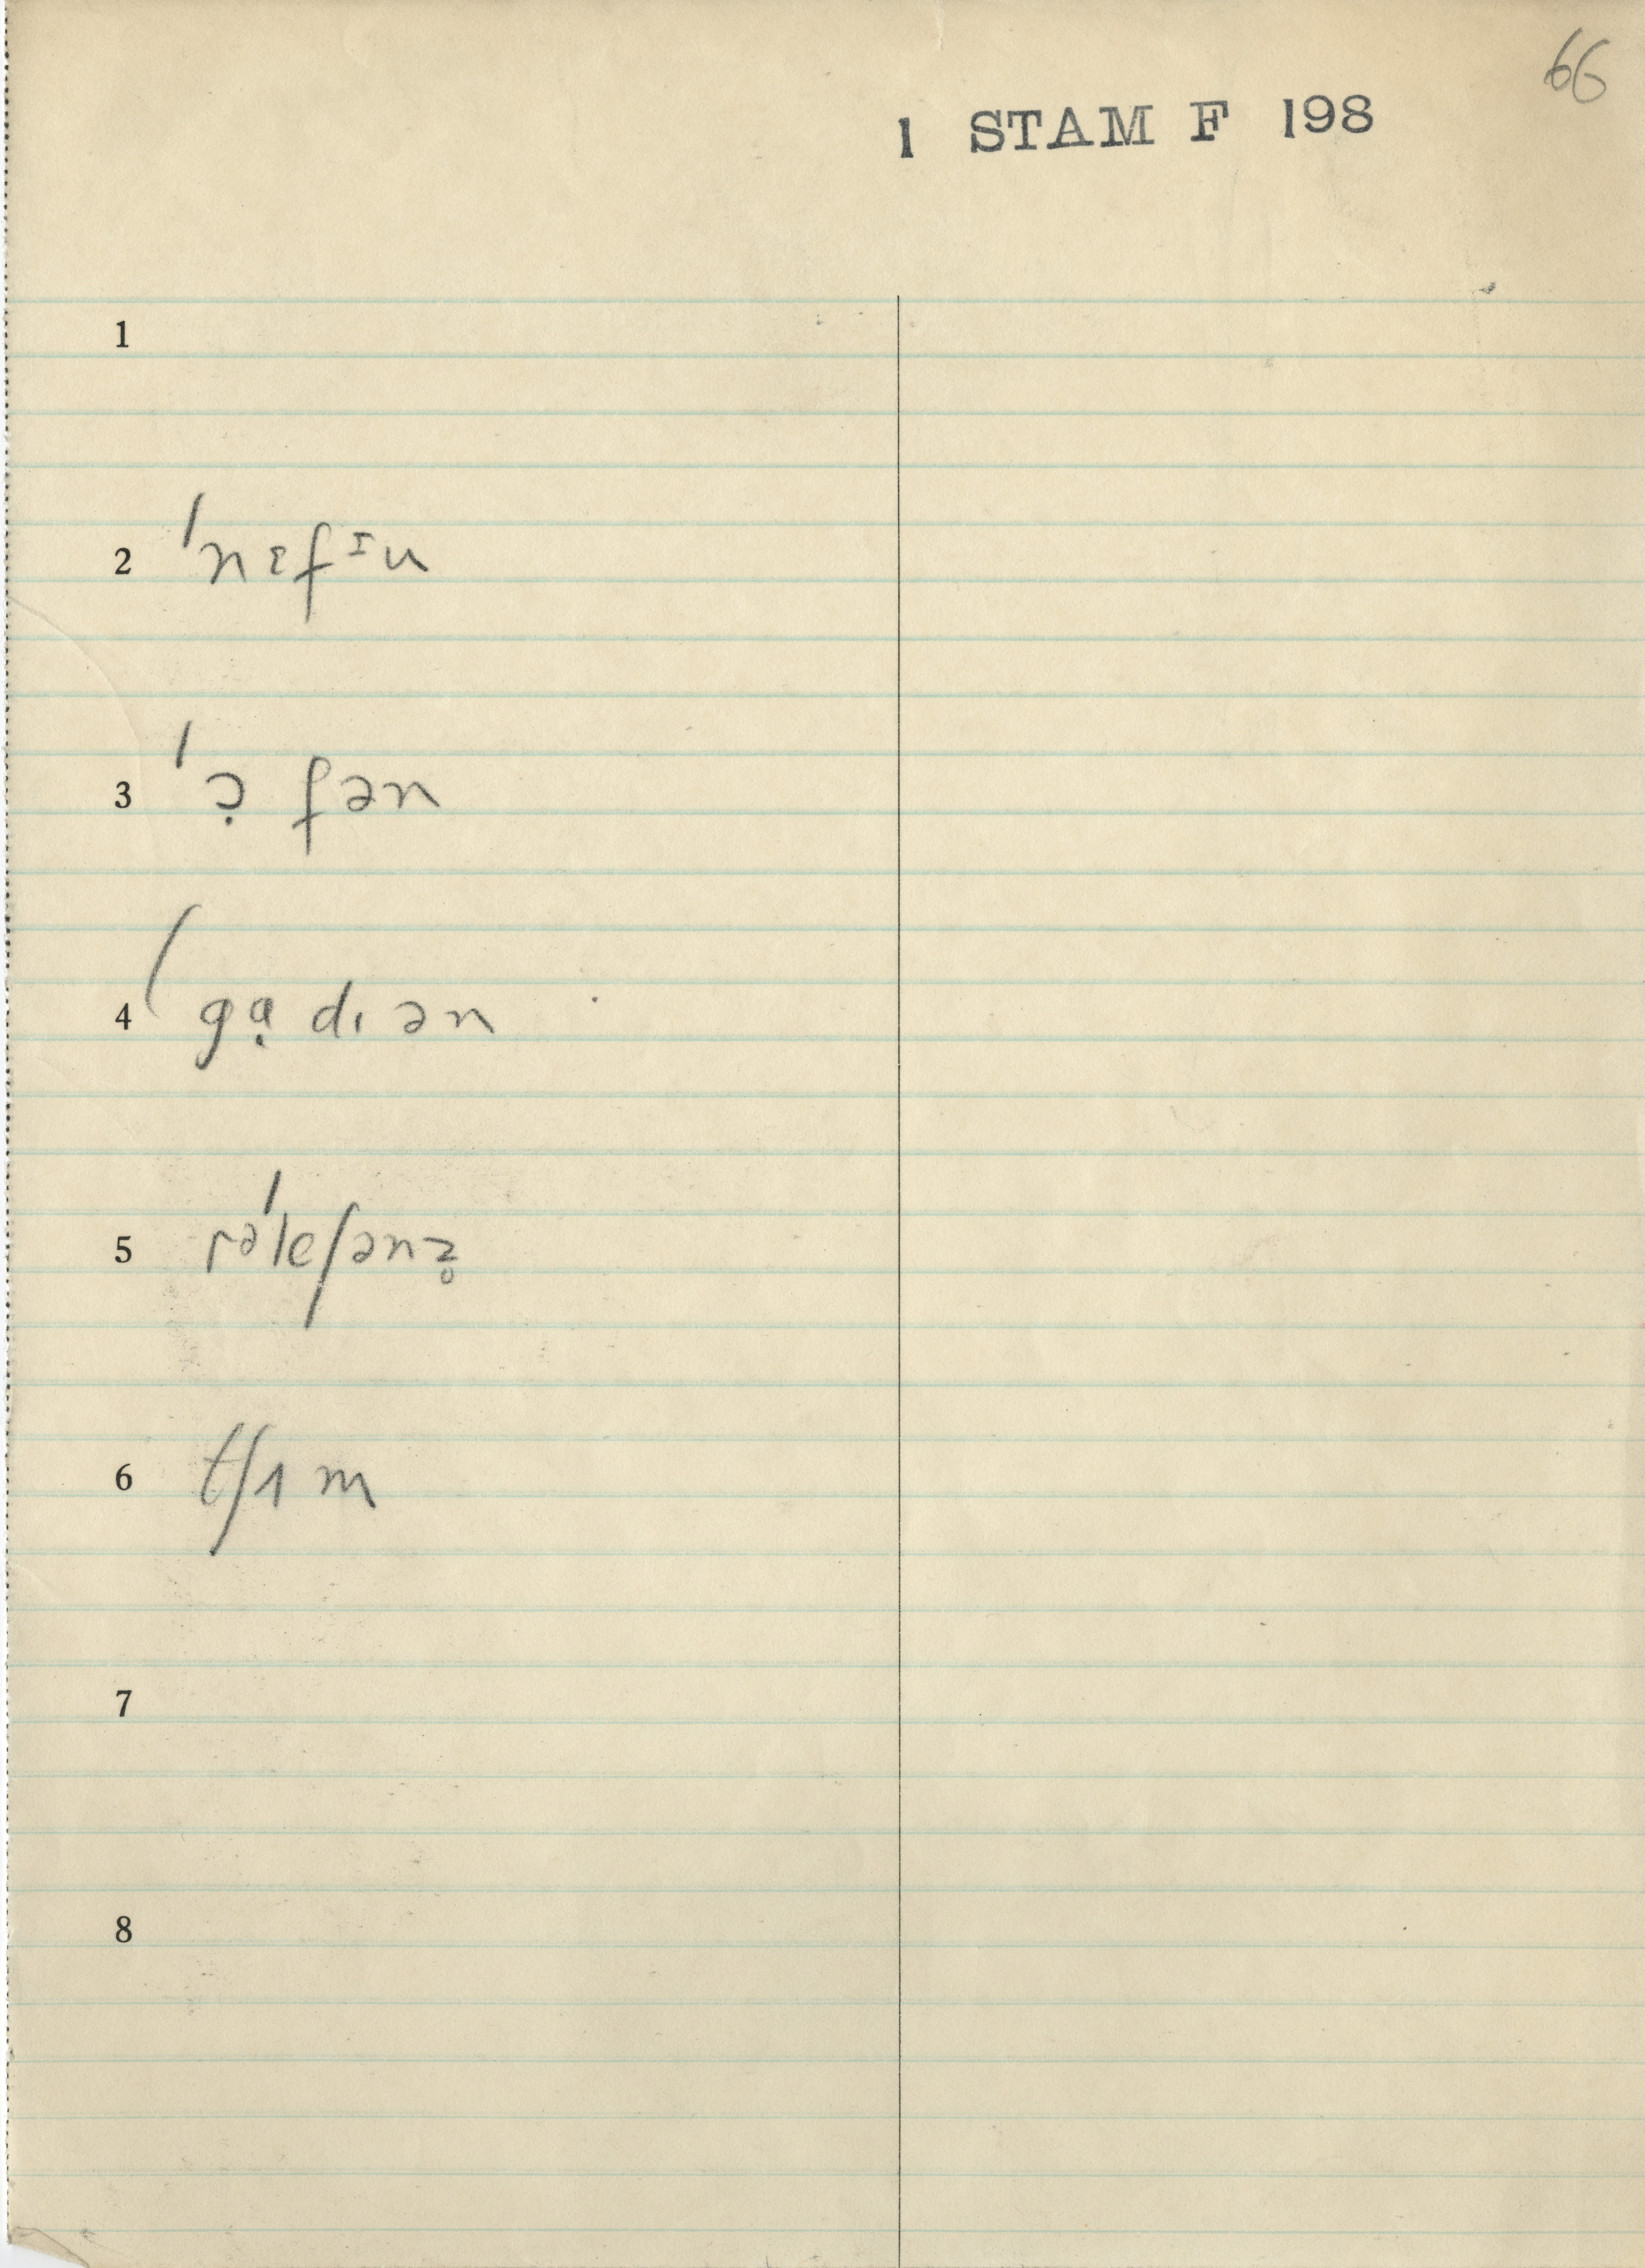 66
1 STAM F 198
1
2 ˈnɛfᶦu
3 ˈɔ̣ fən
4 ˈgɑ̣ dɪ ən
5 rəˈleʃənz̥
6 tʃʌ m
7
8